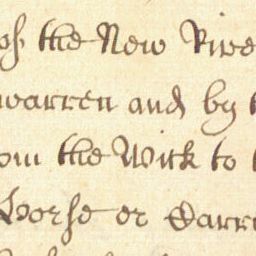 of the New Rive
warren and by t
om the Wick to
Horse or Carri